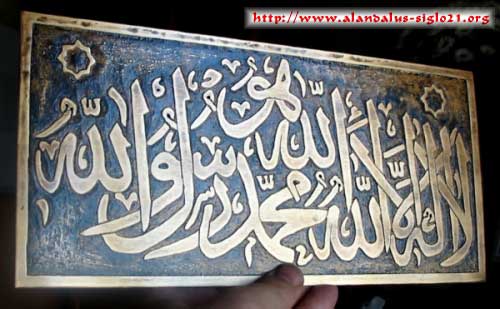 http://www.alandalus-siglo21.org
لا اله الا الله محمد رسول الله